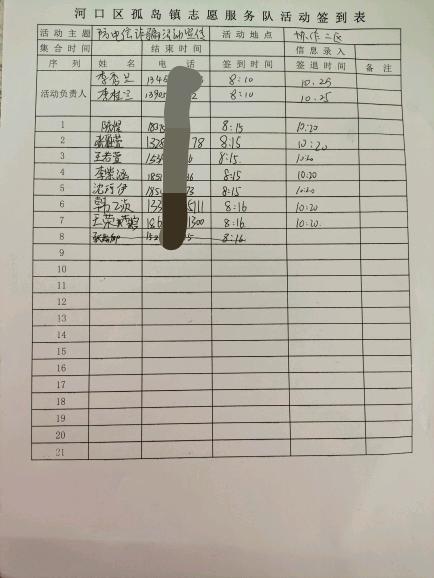 河口区孤岛镇志愿服务队活动签到表
活动主题 防电信诈骗活动宣传 活动地点 协作二区
集合时间 结束时间 信息录入
序列 姓名 电话 签到时间 签退时间 备注
活动负责人 李秀兰 1345 8:10 10.25
李桂兰 13905 2 8:10 10.25
1 8:15 10:20
2 1328 78 8:15 10:20
3 王若萱 8:15 10:20
4 李紫涵 185 36 8:15 10:20
5 沈 伊 185 73 8:15 10:20
6 韩 133 5111 8:16 10:20
7 王荣 186 1300 8:16 10:20
8 8:16
9
10
11
12
13
14
15
16
17
18
19
20
21